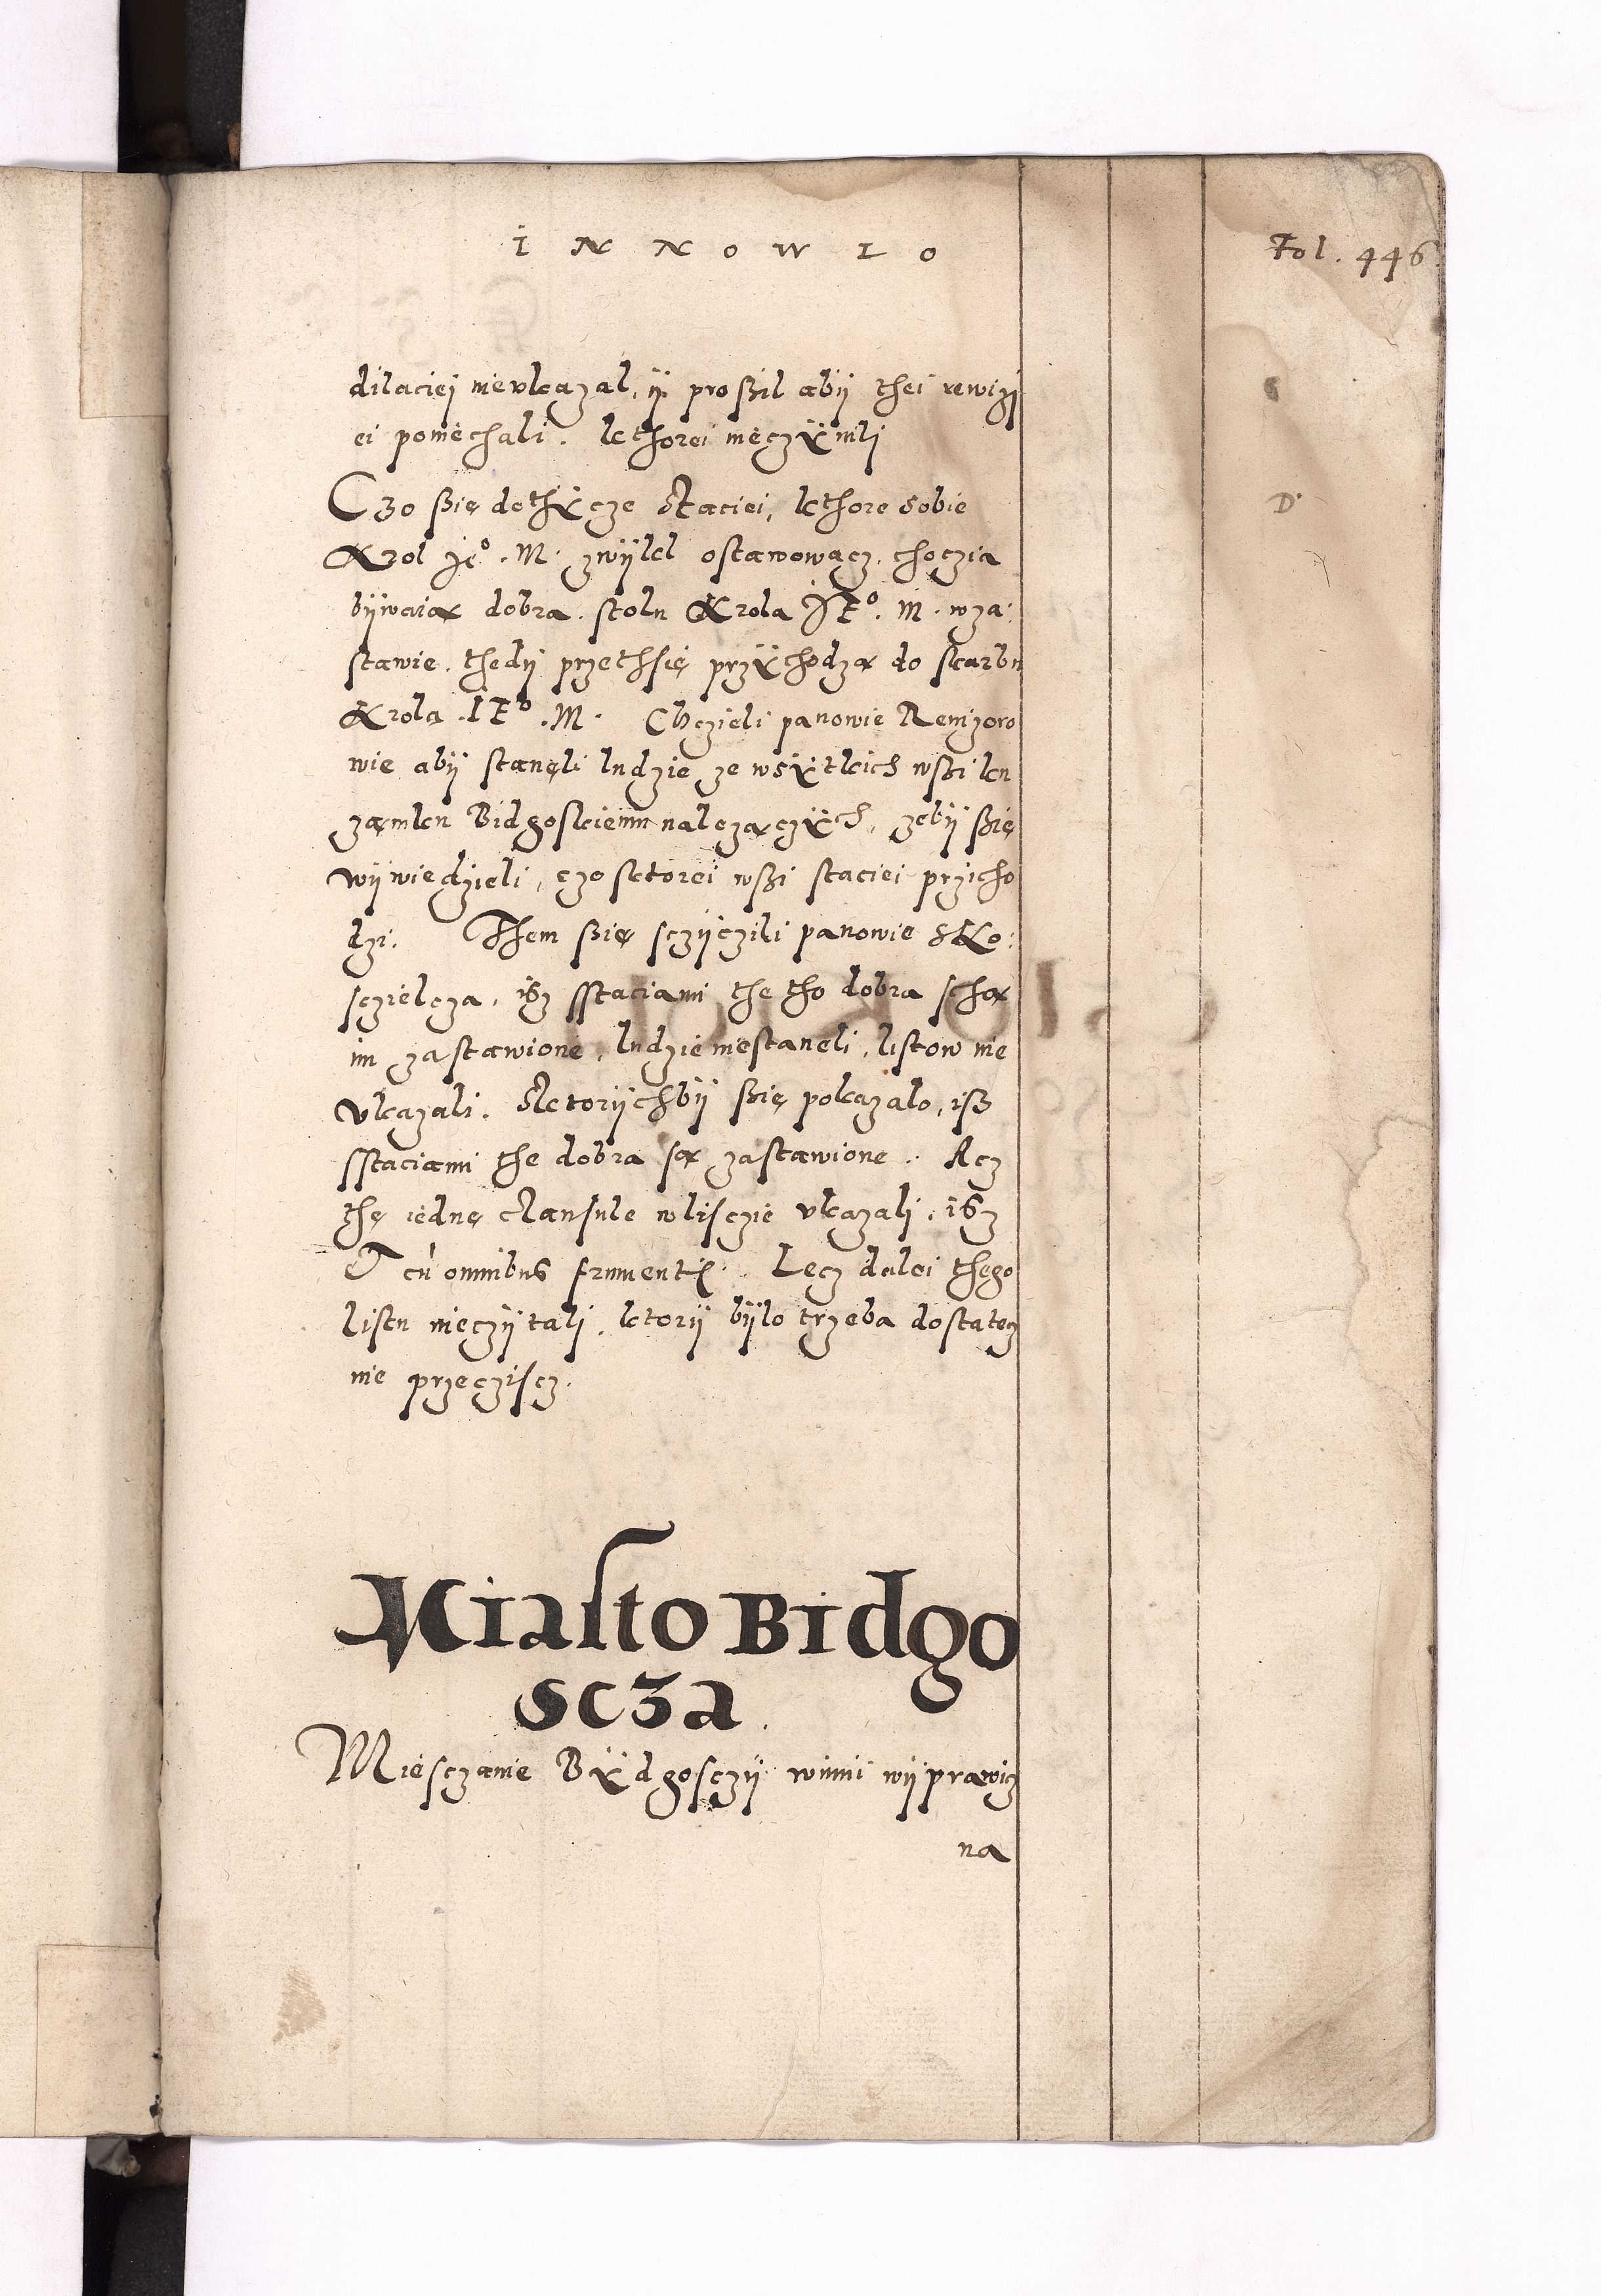 INNOWLO
Fol. 446
dilaciej nieukazal, ÿ proßil abÿ thei rewizj
ei poniechali. kthorei nieczÿnilj
Czo ßię dothÿcze Staciei, kthore sobie
Krol Je⁰. M. zwÿkl ostawowacz. choczia
bÿwaią dobra. stolu Krola JE⁰. M. wza:
stawie. thedÿ przethsię przÿchodzą do scarbu
Krola IE⁰. M. Chczieli panowie Rewizoro
wie abÿ stanęli ludzie ze wsÿtkich wßi ku
zamku Bidgoskiemu nalezączÿch, zebÿ ßię
wÿwiedzieli, czo sktorei wßi staciei przicho
dzi. Them ßię sczÿczili panowie SKo:
sczielcza, isz sstaciami the tho dobra schą
im zastawione, ludzie niestaneli, listow nie
ukazali. Sktorÿchbÿ ßię pokazalo, iß
sstaciami the dobra są zastawione. Acz
thę iednę clausule w lisczie ukazali, isz
cu omnibus frumentis. Lecz dalei thego
listu nieczÿtalj, ktorÿ bÿlo trzeba dostatecz
nie przecziscz.
D.
Miasto Bidgo
scza.
Miesczanie Bÿdgosczÿ winni wÿprawicz
na